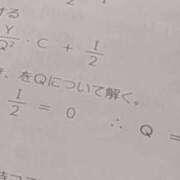 する
Y/Q² · C + I/2
をQについて解く。
I/2 = 0 ∴ Q =